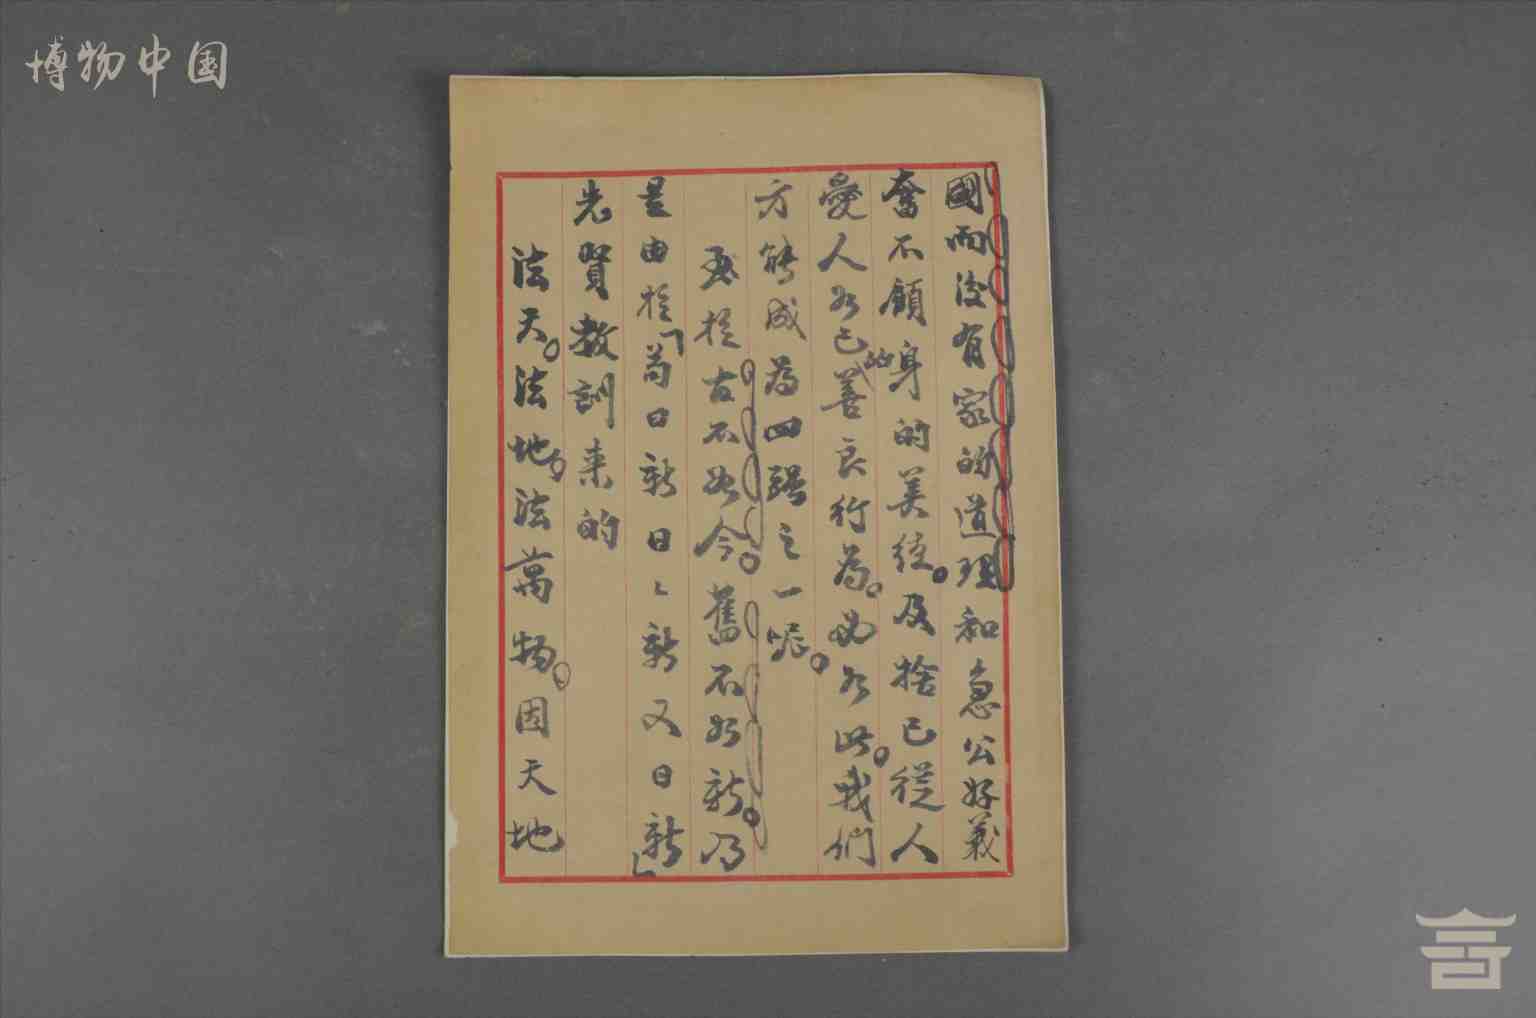 博物中国
國而沒有家的道理和急公好義
奮不顧身的美德。及捨己從人
愛人如己的善良行為。必如此。我們
方能成為四强之一呢。
至於古不如今。舊不如新。乃
是由於「苟日新日々新又日新」
先賢教訓来的
法天。法地。法萬物。因天地